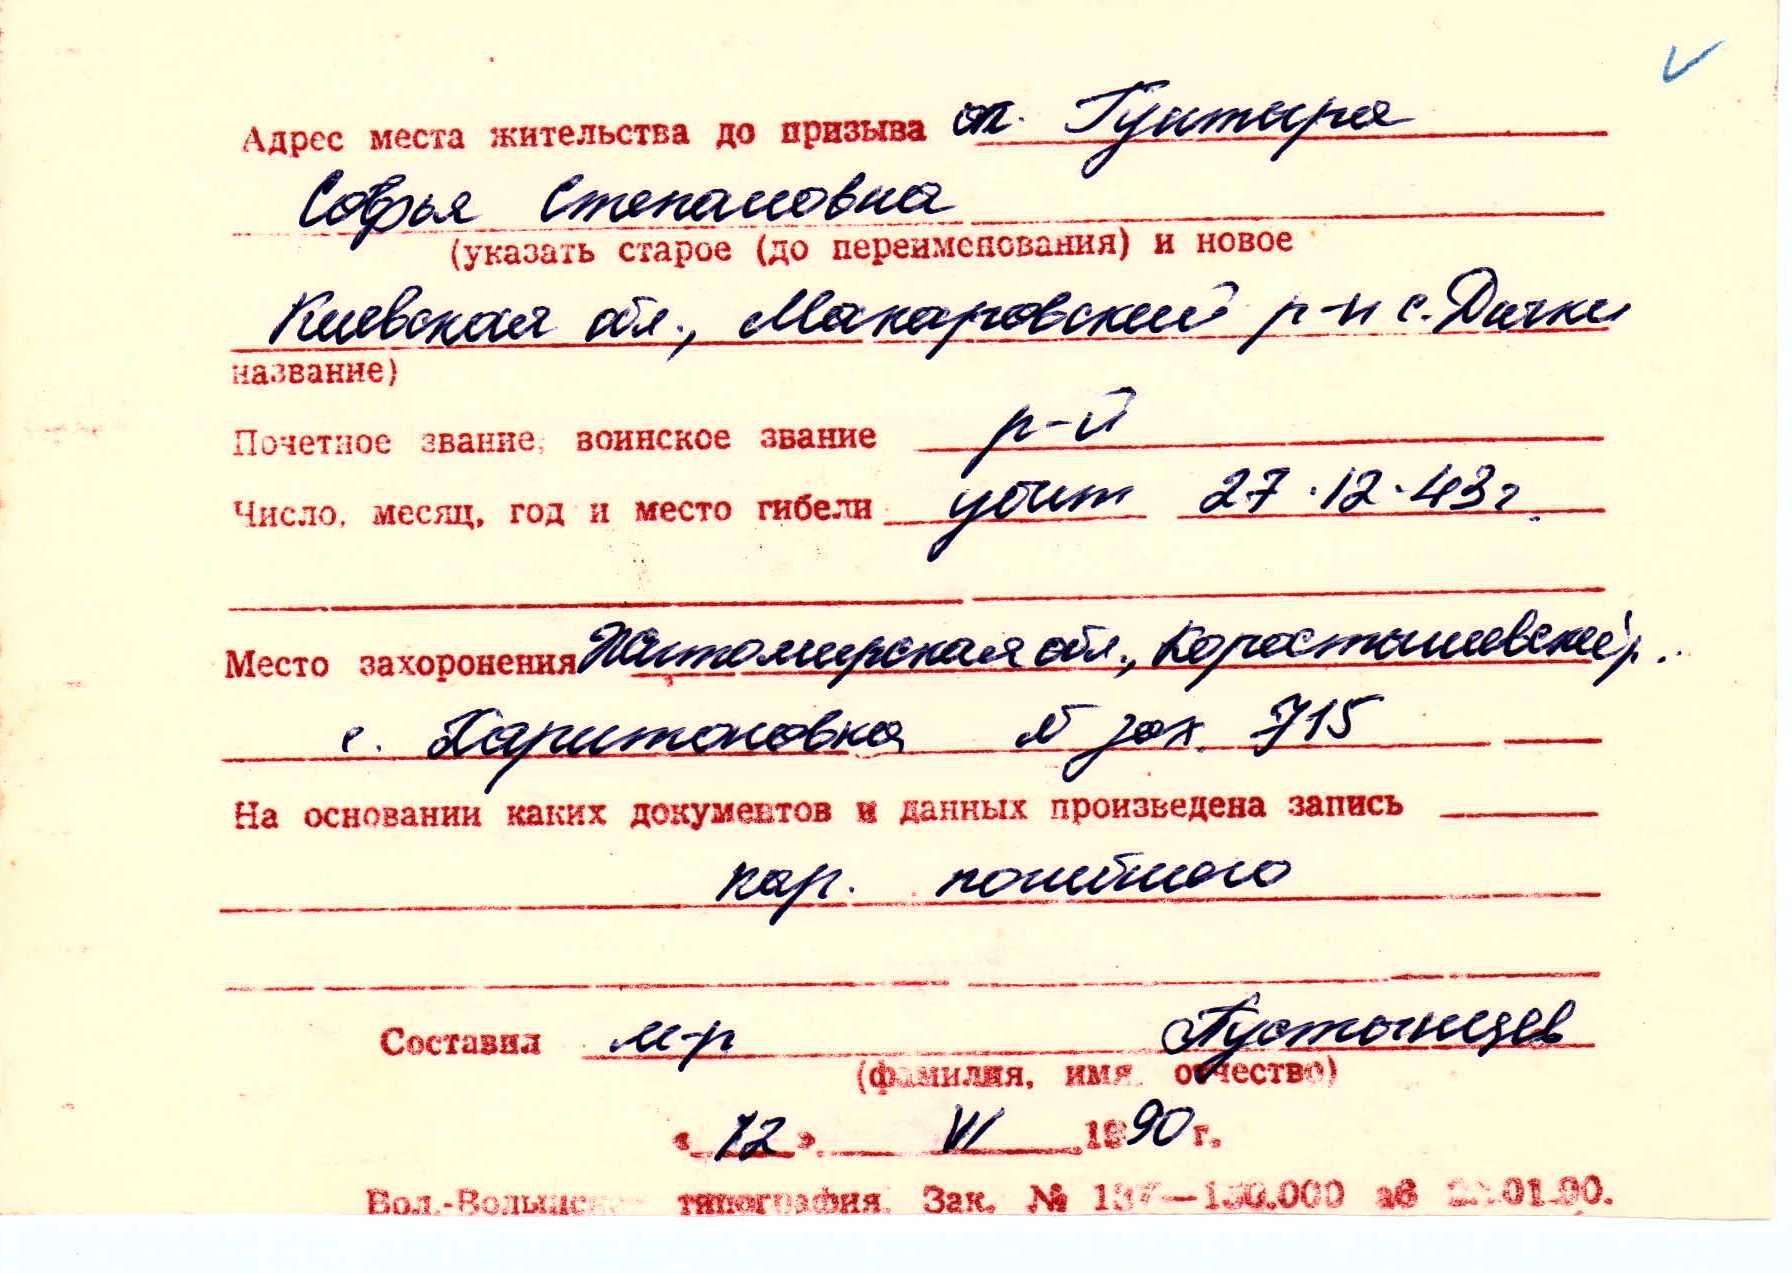 Адрес места жительства до призыва оп. Гунтыра
Софья Степановна
(указать старое (до переименования) и новое
Киевская обл., Макаровский р-н с. Дички
название)
Почетное звание, воинское звание р-й
Число, месяц, год и место гибели убит 27.12.43г.
Место захоронения Житомирская обл., Коростышевский р.
с. Харитоновка № зах. 715
На основании каких документов и данных произведена запись
кар. погибшего
Составил м-р Пустынцев
(фамилия, имя, отчество)
«12» VI 1990 г.
Вол.-Волынская типография. Зак. № 187—150.000 аб 01.90.